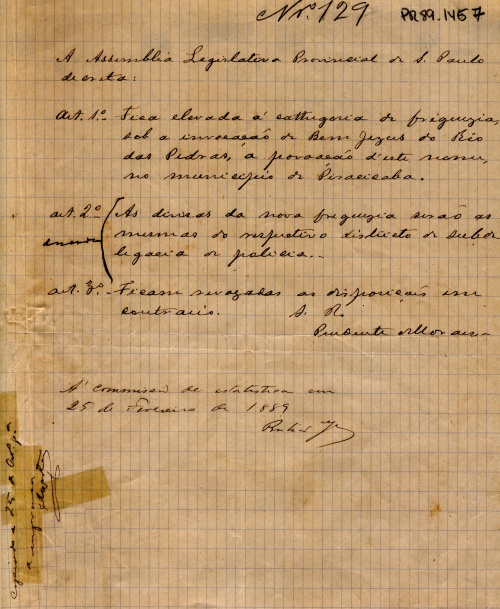 Nº 129
PR89.145 7
A Assemblia Legislativa Provincial de S. Paulo
decreta:
Art. 1.º Fica elevada á cathegoria de freguezia,
sob a invocação de Bom Jezus do Rio
das Pedras, a povoação d'este nome,
no municipio de Piracicaba.
Art. 2º As divisas da nova freguezia serão as
emenda
mesmas do respectivo districto de subde
legacia de policia.
Art. 3.º Ficam revogadas as disposições em
contrario. S. R.
Prudente Moraes
A' commissão de estatistica em
25 de Fevereiro de 1889
a 25 de
a imprimir